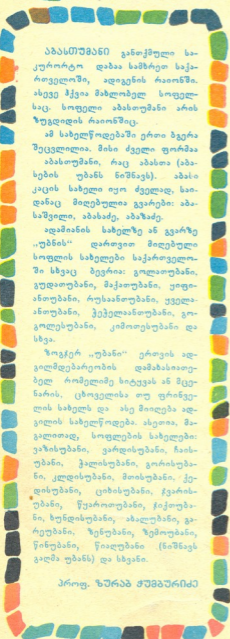 აბასთუმანი განთქმული სა-
კურორტო დაბაა სამხრეთ საქა-
რთველოში, ადიგენის რაიონში.
ასევე ჰქვია მახლობელ სოფელ-
საც. სოფელი აბასთუმანი არის
ზუგდიდის რაიონშიც.
ამ სახელწოდებაში ერთი ბგერა
შეცვლილია. მისი ძველი ფორმაა
აბასთუბანი, რაც აბასთა (აბა-
სების უბანს ნიშნავს). აბასი
კაცის სახელი იყო ძველად, საი-
დანაც მიღებულია გვარები: აბა-
საშვილი, აბასაძე, აბაზაძე.
ადამიანის სახელზე ან გვარზე
„უბნის" დართვით მიღებული
სოფლის სახელები საქართველო-
ში სხვაც ბევრია: გოლათუბანი,
გუდათუბანი, მაქათუბანი, ყიფი-
ანთუბანი, რუსაანთუბანი, ყველა-
ანთუბანი, ჭეჭელაანთუბანი, გო-
გოლესუბანი, კიმოთესუბანი და
სხვა.
ზოგჯერ „უბანი" ერთვის ად-
გილმდებარეობის დამახასიათე-
ბელ რომელიმე სიტყვას ან მცე-
ნარის, ცხოველისა თუ ფრინვე-
ლის სახელს და ასე მიიღება ად-
გილის სახელწოდება. ასეთია, მა-
გალითად, სოფლების სახელები:
ვაზისუბანი, ვარდისუბანი, ჩაის-
უბანი, ჭალისუბანი, გორისუბა-
ნი, კლდისუბანი, მთისუბანი, ქე-
დისუბანი, ციხისუბანი, ჯვარის-
უბანი, წყაროთუბანი, ჭიქთუბა-
ნი, ხუნდისუბანი, ახალუბანი, გა-
რეუბანი, ზენუბანი, ზემოუბანი,
წინუბანი, წიაღუბანი (ნიშნავს
გაღმა უბანს) და სხვანი.
პროფ. ზურაბ ჭუმბურიძე